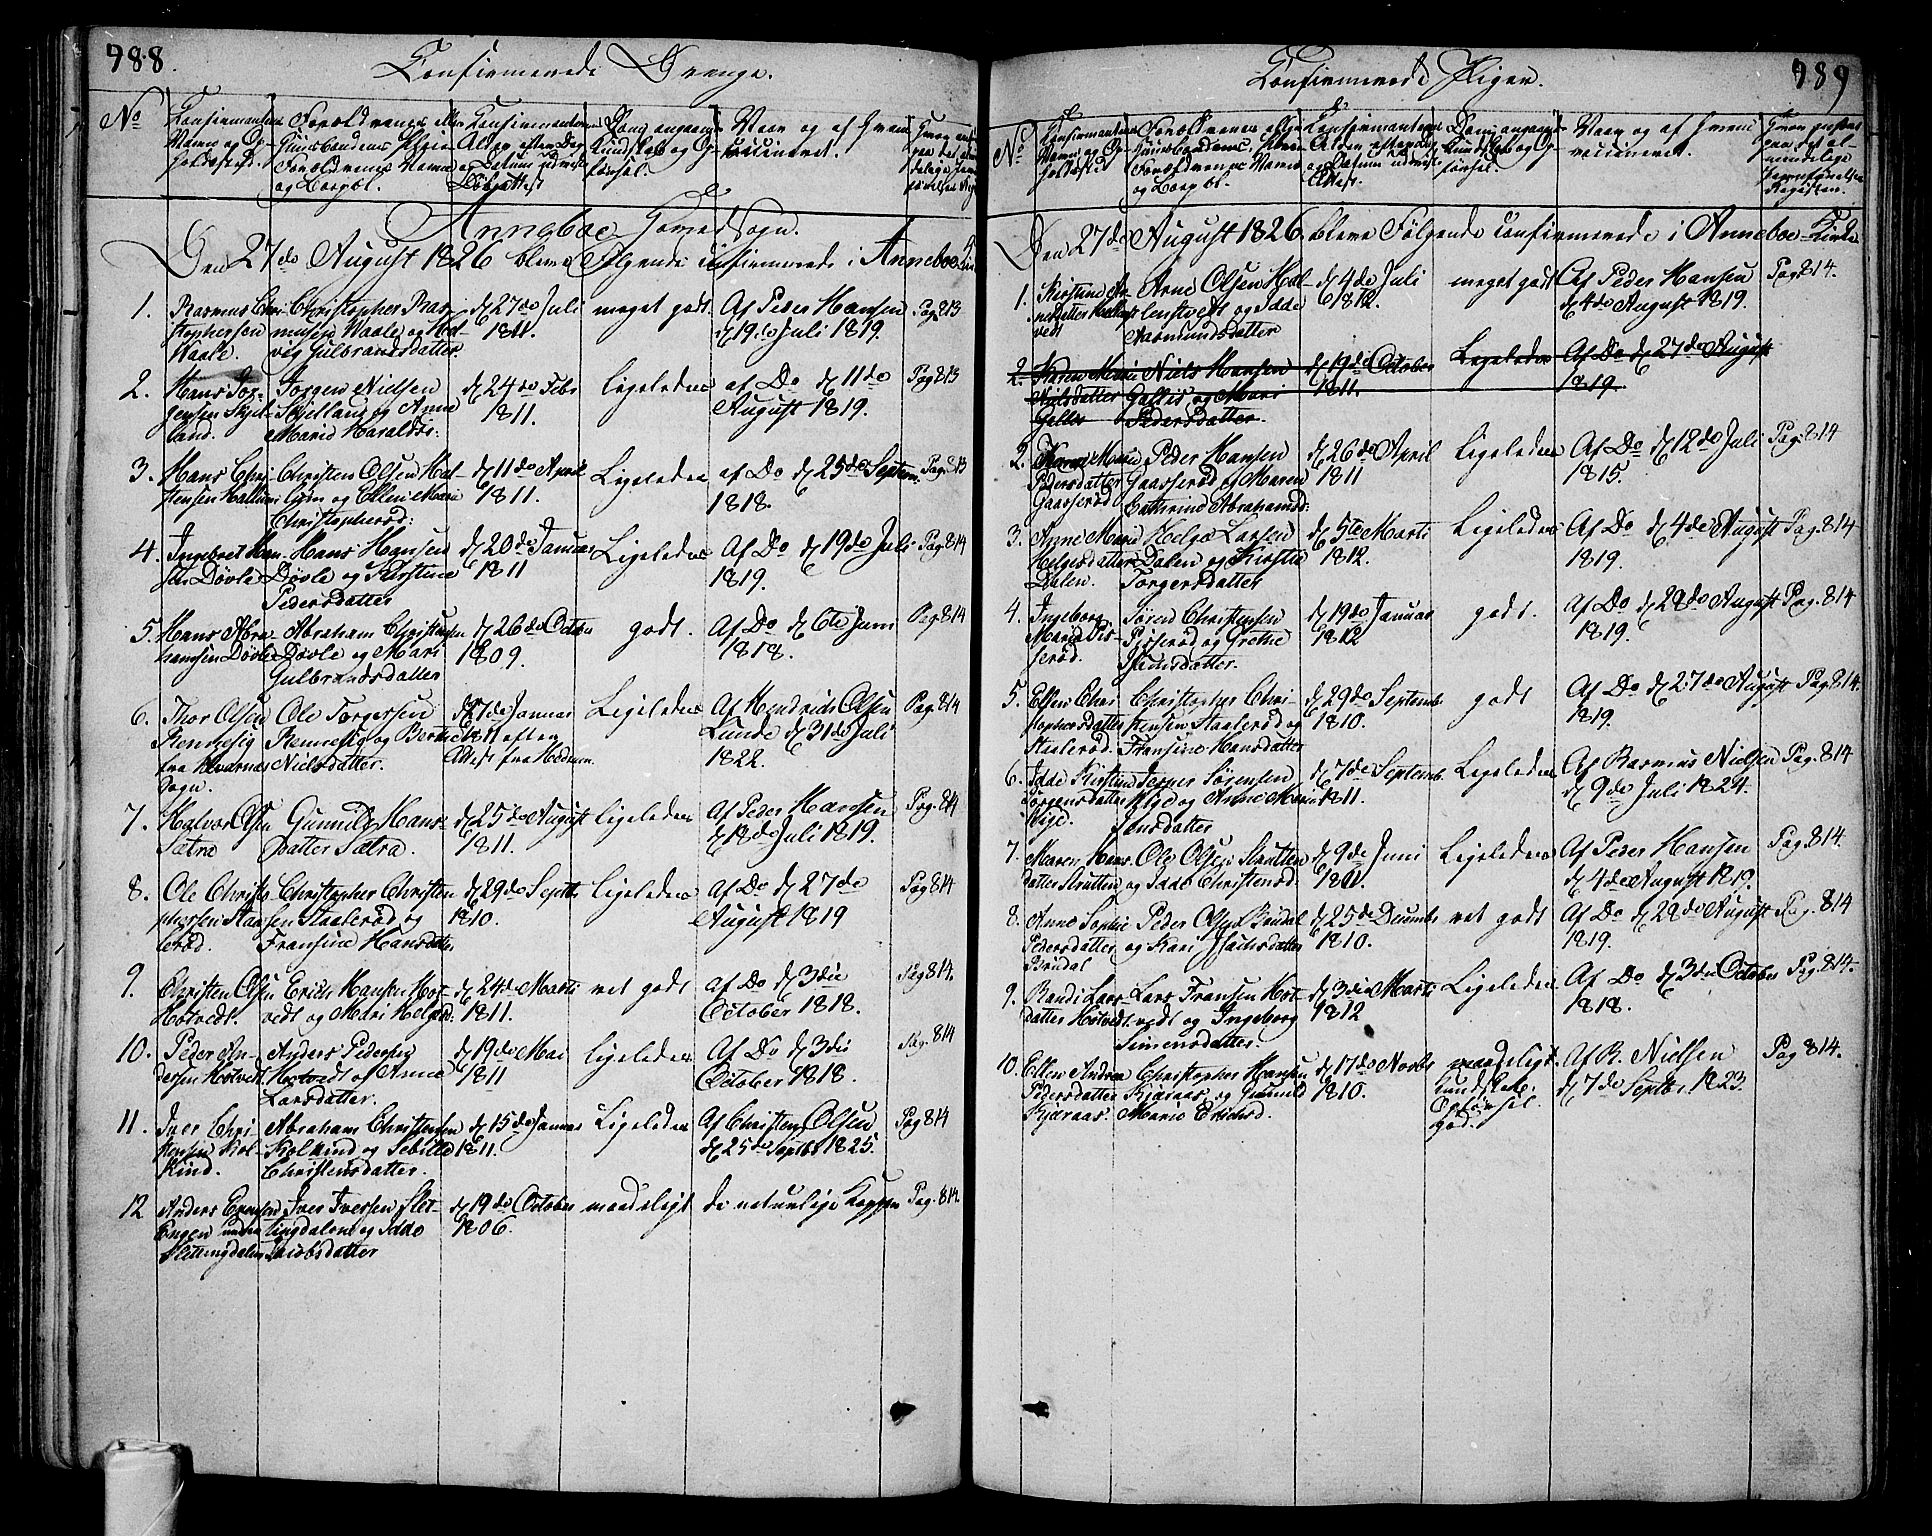 788.
Confirmerede Drenge.
No
Confirmantens Navn og Opholdssted.
Forældrenes eller Huusbondens
Forældrenes Navne og Bopæl.
Confirmantens Alder efter Dag og Datum
Døbeattest
Dom angaaende Kundskab og Opførsel.
Naar og af hvem vaccineret.
Anneboe Hoved Sogn.
Den 27de August 1826 bleve Følgende confirmerede i Anneboe
1. Rasmus Christophersen Waale. Christophersen Rasmusen Waale og Hedvig Gulbrandsdatter. d. 27de Juli 1811. meget godt. Af Peder Hansen d. 19de Juli 1819. Pag 813
2. Hans Jørgensen Skjelland. Jørgen Nielsen Skjelland og Anne Marie Haraldsd: d. 24de Febr 1811. Ligeledes af Do d. 11de August 1819. Pag 813
3. Hans Christensen Christen Olsen og Ellen Marie Christophersd: d. 11de April 1811. Ligeledes af Do d. 25de Septem. 1818. Pag. 813
4. Ingebret Hansen Døvle Hans Hansen Døvle og Kirstine Pedersdatter d. 20de Januar 1811 Ligeledes Af Do d. 19de Juli 1819. Pag. 814
5. Hans Abrahamsen Døvle Abraham Christensen Døvle og Mari Gulbrandsdatter d. 26de Octbr 1809. godt. Af Do d. 6te Juni 1818. Pag 814
6. Thor Olsen Rennesig fra Sogn. Ole Torgersen Rennesig og Nielsdatter. d. 7de Januar 1811 efter Attest fra Ligeledes Af Hendrich Olsen Lunde d. 31de Juli 1822. Pag. 814
7. Halvor Olsen Sætra Gunnild Hansdatter Sætra. d. 25de August 1811. ligeledes Af Peder Hansen d. 12de Juli 1819. Pag. 814
8. Ole Christophersen Staalerød. Christopher Christensen Staalerød og Fransine Hansdatter d. 29de Septb 1810. ligeledes Af Do d. 27de August 1819 Pag 814
9. Christen Olsen Hotvedt. Erich Hansen Hotvedt og Mari Helgesd: d. 24de Marti 1811. ret godt Af Do d. 3die October 1818. Pag 814.
10. Peder Andersen Hotvedt. Anders Pedersen Hotvedt og Anne Larsdatter. d. 19de Mai 1811 ligeledes Af Do d. 3die October 1818. Pag. 814
11. Iver Christensen Kolkind. Abraham Christensen Kolkind og Sebille Christensdatter. d. 15de Januar 1811. Ligeledes Af Christen Olsen d. 25de Septbr 1825. Pag 814
12 Anders Evensen Engen under Slettingdalen Iver Iversen Slettingdalen og Idde Jacobsdatter d. 19de October 1806. maadeligt de naturlige Kopper Pag. 814.
789
Confirmerede Piger.
No
Confirmantens Navn og Opholdssted
Forældrenes eller Huusbondens,
Forældrenes Navne og Bopæl.
Confirmantens Alder efter Dag og Datum
Attest.
Dom angaaende Kundskab og Opførsel.
Naar og af hvem vaccineret.
Hvor anført paa det almindelige Jevnførelses Register.
Den 27de August 1826 bleve Følgende confirmerede i Anneboe Kirke
1. Kirstine Arnesdatter Arne Olsen og Idde Aasmundsdatter d. 4de Juli 1812. meget godt Af Peder Hansen d. 4de August 1819. Pag 814.
2. Karen Marie Nielsdatter Niels Hansen og Mari Pedersdatter d. 19de October 1811. Ligeledes Af Do d. 27de August 1819.
2. Karen Marie Pedersdatter Gaasserød Peder Hansen Gaasserød og Maren Cathrine Abrahamsd: d. 26de April 1811 Ligeledes Af Do d. 12de Juli 1815. Pag: 814
3. Anne Marie Helgesdatter Dalen. Helge Larsen Dalen og Kirstie Torgersdatter d. 5te Marti 1812. Ligeledes Af Do d. 4de August 1819. Pag. 814
4. Ingeborg Marie Søren Christensen og Grethe d. 19de Januar 1812 godt. Af Do d. 28de August 1819. Pag. 814
5. Ellen Christophersdatter Staalerød. Christopher Christensen Staalerød og Fransine Hansdatter d. 29de Septemb. 1810. godt Af Do d. 27de August 1819. Pag. 814.
6. Idde Kirstine Jørgensdatter Jørgen Sørensen og Anne Marie Jonsdatter d. 7de Septemb. 1811. Ligeledes Af Rasmus Nielsen d. 9de Juli 1824. Pag. 814
7. Maren Hansdatter Strutten Ole Olsen Strutten og Idde Christensd: d. 9de Juni 1811. Ligeledes Af Peder Hansen d. 4de August 1819. Pag 814.
8. Anne Sophie Pedersdatter Brudal Peder Olsen Brudal og Kari Isachsdatter d. 25de Decembr 1810. ret godt Af Do d. 28de August 1819. Pag. 814
9. Randi Larsdatter Hotvedt. Lars Fransen Hotvedt og Ingeborg Simensdatter. d. 3die Marti 1812 Ligeledes Af Do d. 3die October 1818. Pag. 814.
10. Ellen Andrea Pedersdatter Kjæraas. Christopher Hansen Kjæraas, og Gunnild Marie Erichsd. d. 17de Novbr 1810. maadeligt Kundskab. Opførsel god. Af R. Nielsen d. 7de Septbr. 1823. Pag 814.